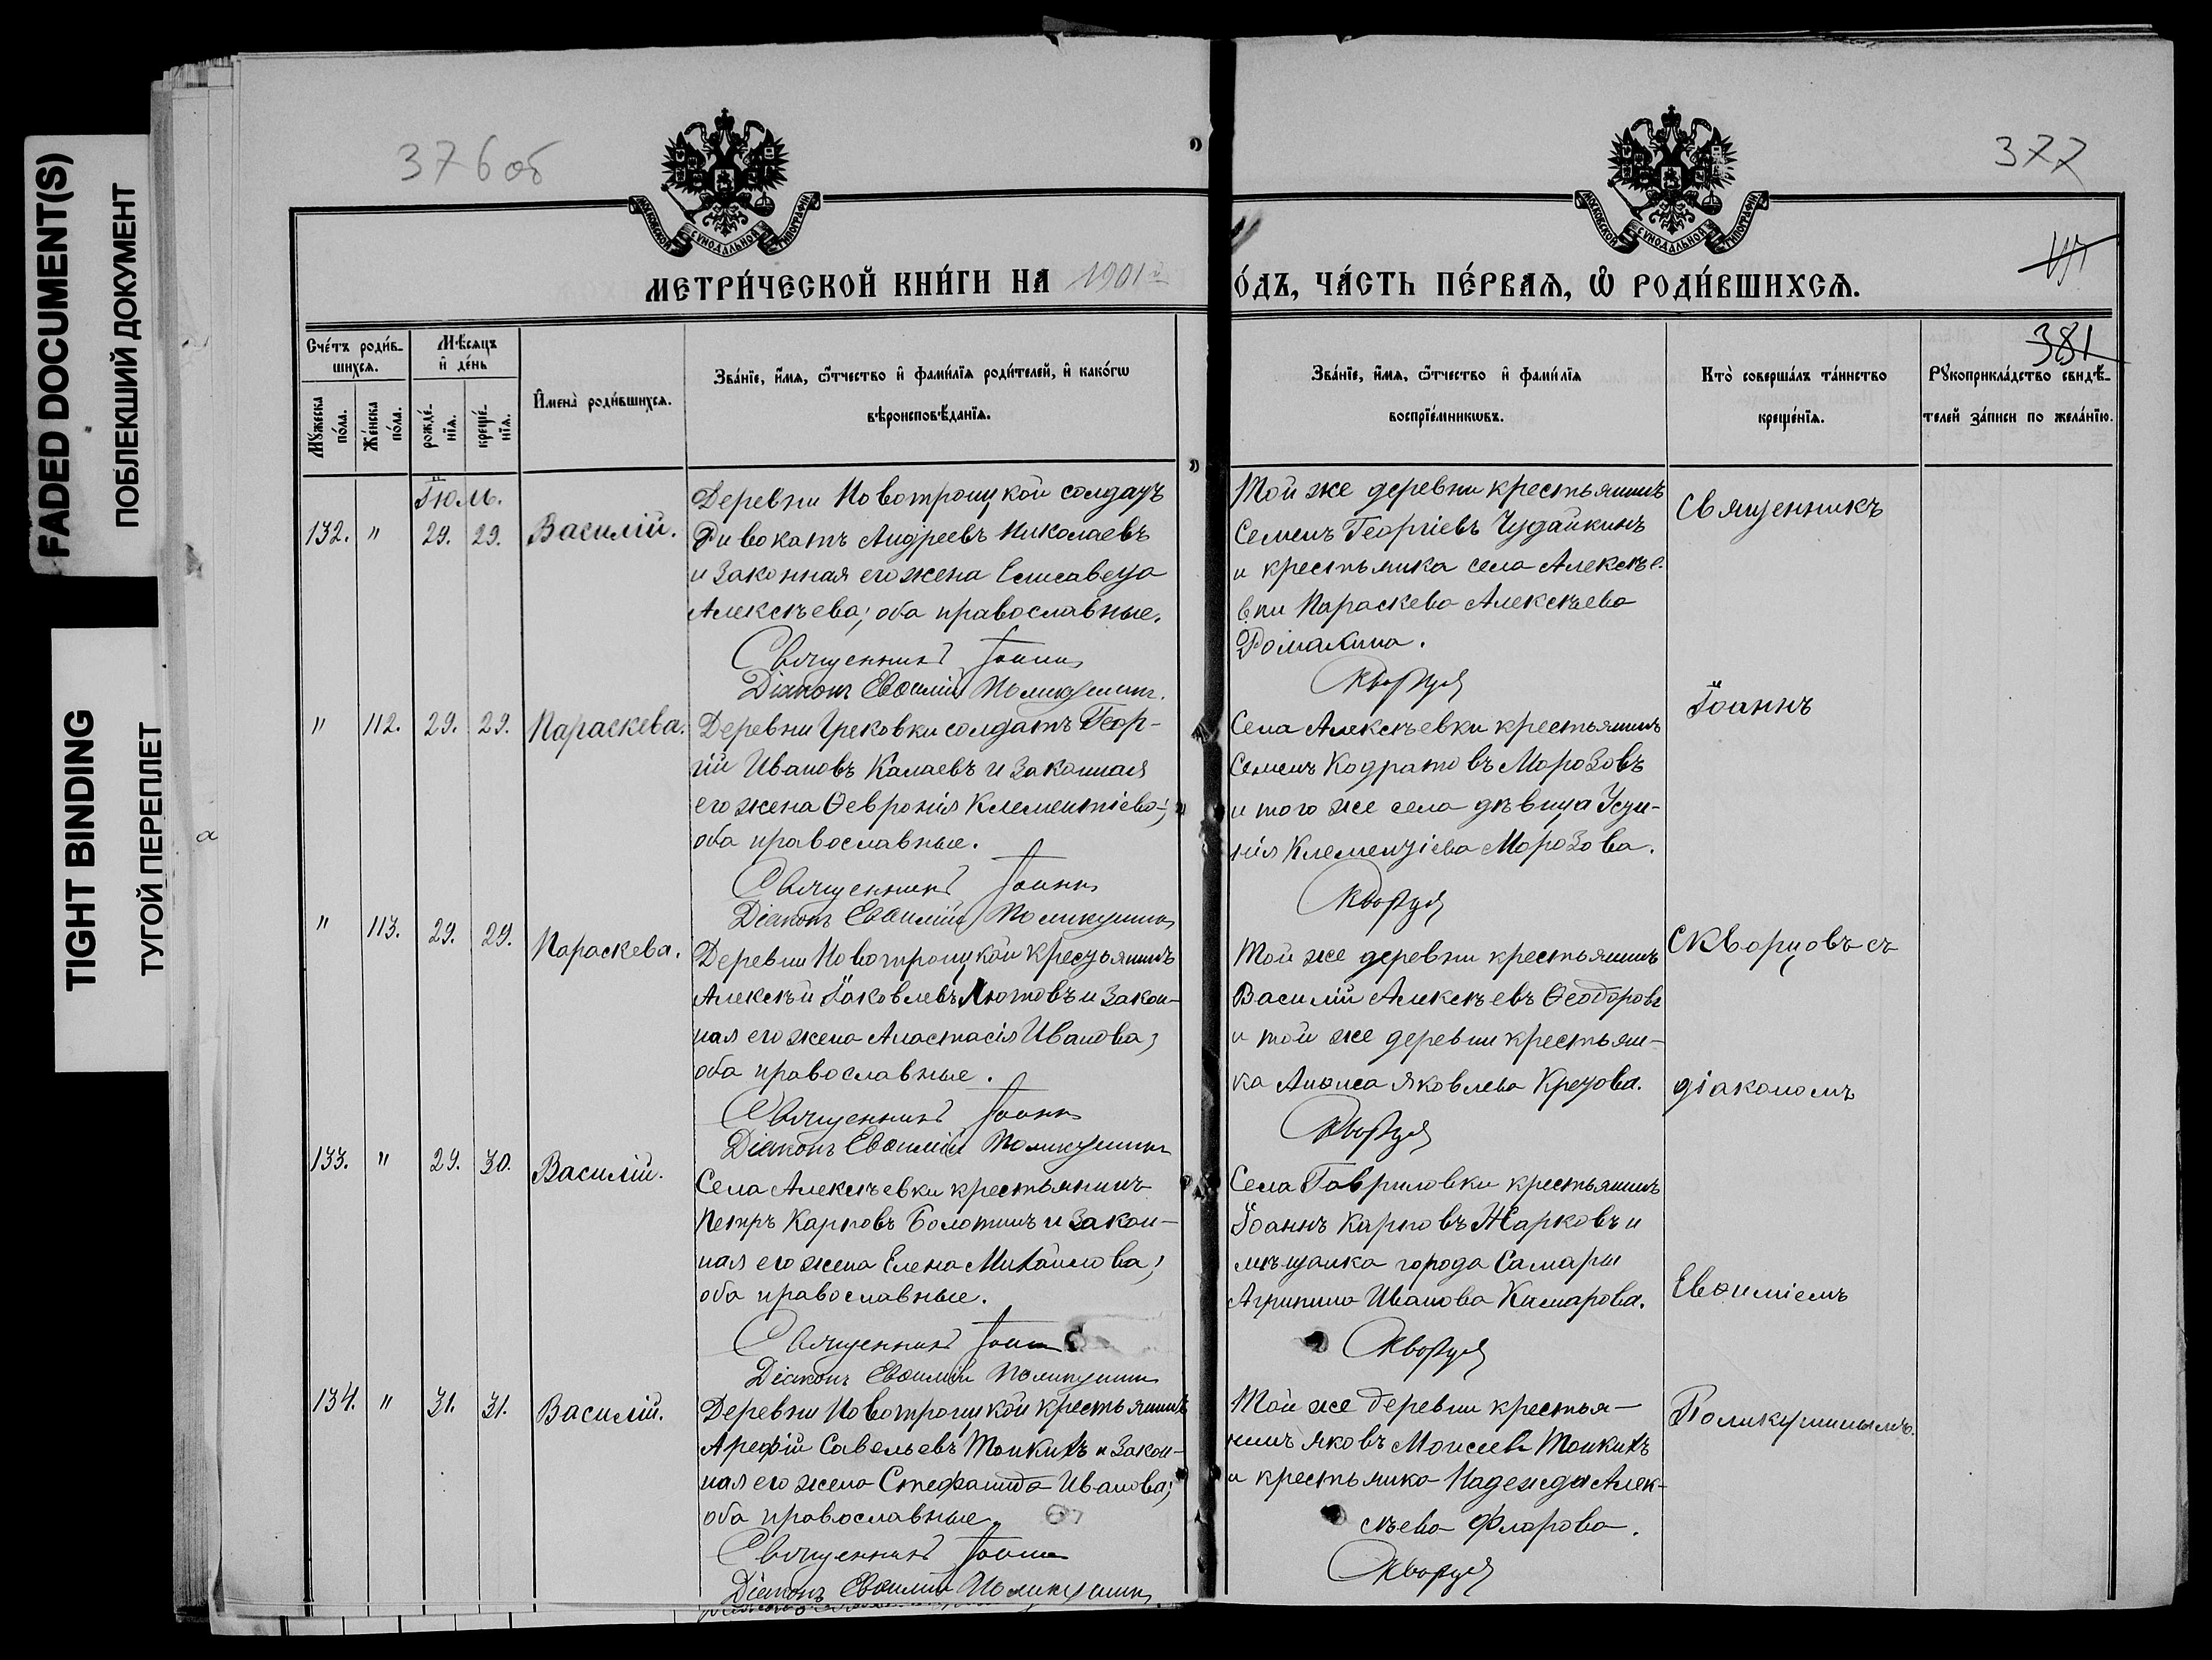 FADED DOCUMENT(S)
ПОБЛЕКШИЙ ДОКУМЕНТ
TIGHT BINDING
ТУГОЙ ПЕРЕПЛЕТ
376 об
377
МОСКОВСКОЙ СѴНОДАЛЬНОЙ ТИПОГРАФІИ
МОСКОВСКОЙ СѴНОДАЛЬНОЙ ТИПОГРАФІИ
МЕТРИ́ЧЕСКОЙ КНИ́ГИ НА 1901й
О́ДЪ, ЧА́СТЬ ПЕ́РВАѦ, Ѽ РОДИ́ВШИХСѦ.
381
Сче́тъ роди́в-
шихсѧ.
Мѣ́сѧцъ
и҆ де́нь
Мꙋ́жеска
по́ла.
Же́нска
по́ла.
рожде́-
нїѧ.
креще́-
нїѧ.
И҆мена̀ роди́вшихсѧ.
Зва́нїе, и҆́мѧ, ѻ҆́тчество и҆ фами́лїѧ роди́телей, и҆ како́гѡ
вѣроисповѣ́данїѧ.
Зва́нїе, и҆́мѧ, ѻ҆́тчество и҆ фами́лїѧ
воспрїе́мникѡвъ.
Кто̀ соверша́лъ та́инство
креще́нїѧ.
Рꙋкоприкла́дство свидѣ́-
телей за́писи по жела́нїю.
Іюль.
132. " 29. 29. Василій.
Деревни Новотроицкой солдатъ
Андреевъ Николаевъ
и законная его жена Елисавета
Алексѣева; оба православные.
Священникъ Іоаннъ
Діаконъ Евѳимій Поликушинъ.
Той же деревни крестьянинъ
Семенъ Георгіевъ Чудайкинъ
и крестьянка села Алексѣе-
вки Параскева Алексѣева
Ромахина.
Скворцовъ
" 112. 29. 29. Параскева.
Деревни Грековки солдатъ Геор-
гій Ивановъ Калаевъ и законная
его жена Ѳевронія Клементіева;
оба православные.
Священникъ Іоаннъ
Діаконъ Евѳимій Поликушинъ
Села Алексѣевки крестьянинъ
Семенъ Кодратовъ Морозовъ
и того же села дѣвица Усти-
нія Клементіева Морозова.
Скворцовъ
" 113. 29. 29. Параскева.
Деревни Новотроицкой крестьянинъ
Алексѣй Іаковлевъ Лютовъ и закон-
ная его жена Анастасія Иванова;
оба православные.
Священникъ Іоаннъ
Діаконъ Евѳимій Поликушинъ
Той же деревни крестьянинъ
Василій Алексѣевъ Ѳеодоровъ
и той же деревни крестьян-
ка Анѳиса Яковлева Кретова.
Скворцовъ
133. " 29. 30. Василій.
Села Алексѣевки крестьянинъ
Петръ Карповъ Болотинъ и закон-
ная его жена Елена Михайлова;
оба православные.
Священникъ Іоаннъ
Діаконъ Евѳимій Поликушинъ
Села Гавриловки крестьянинъ
Іоаннъ Карповъ Жарковъ и
мѣщанка города Самары
Агрипина Иванова Камарова.
Скворцовъ
134. " 31. 31. Василій.
Деревни Новотроицкой крестьянинъ
Арефій Савельевъ Тонкихъ и закон-
ная его жена Стефанида Иванова;
оба православные.
Священникъ Іоаннъ
Діаконъ Евѳимій Поликушинъ
Той же деревни крестья-
нинъ Яковъ Моисеевъ Тонкихъ
и крестьянка Надежда Алек-
сѣева Фларова.
Скворцовъ
Священникъ
Іоаннъ
Скворцовъ съ
діакономъ
Евѳиміемъ
Поликушинымъ.